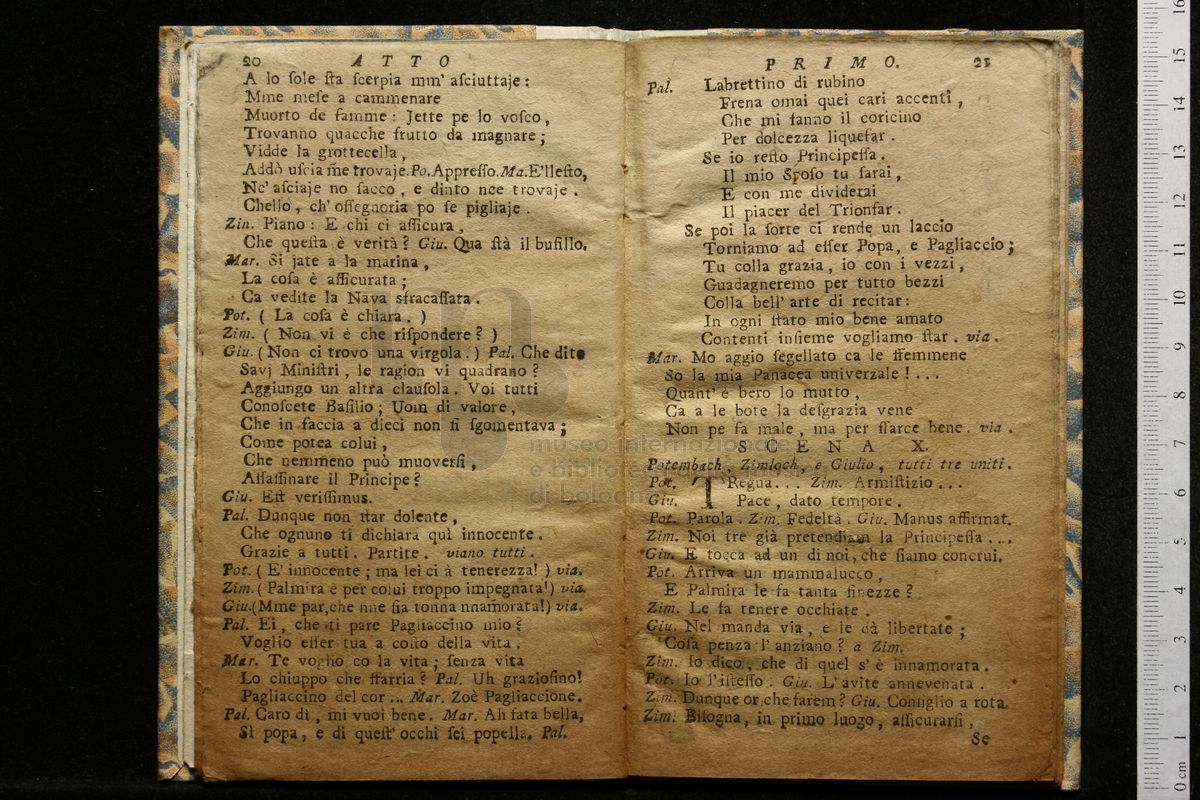 20 A T T O
A lo ſole ſta ſcerpia mm' aſciuttaje:
Mme meſe a cammenare
Muorto de famme: Jette pe lo voſco,
Trovanno quacche frutto da magnare;
Vidde la grottecella,
Addò uſcia m̃e trovaje. Po. Appreſſo. Ma. E'lleſto,
Nc' aſciaje no ſacco, e dinto nce trovaje.
Chello, ch' oſſegnoria po ſe pigliaje.
Zin. Piano: E chi ci aſſicura,
Che queſta è verità? Giu. Qua ſtà il buſillo.
Mar. Si jate a la marina,
La coſa è aſſicurata;
Ca vedite la Nava sfracaſſata.
Pot. ( La coſa è chiara. )
Zim. ( Non vi è che riſpondere? )
Giu. (Non ci trovo una virgola.) Pal. Che dite
Savj Miniſtri, le ragion vi quadrano?
Aggiungo un altra clauſola. Voi tutti
Conoſcete Baſilio; Uom di valore,
Che in faccia a dieci non ſi sgomentava;
Come potea colui,
Che nemmeno può muoverſi,
Aſſaſſinare il Principe?
Giu. Eſt veriſſimus.
Pal. Dunque non ſtar dolente,
Che ognuno ti dichiara quì innocente.
Grazie a tutti. Partite. viano tutti.
Pot. ( E' innocente; ma lei ci à tenerezza! ) via.
Zim. (Palmira è per colui troppo impegnata!) via.
Giu. (Mme par, che nne ſia tonna nnamorata!) via.
Pal. Ei, che ti pare Pagliaccino mio?
Voglio eſſer tua a coſto della vita.
Mar. Te voglio co la vita; ſenza vita
Lo chiuppo che ſtarria? Pal. Uh grazioſino!
Pagliaccino del cor... Mar. Zoè Pagliaccione.
Pal. Caro dì, mi vuoi bene. Mar. Ah fata bella,
Sì popa, e di queſt' occhi ſei popella. Pal.
P R I M O. 21
Pal. Labrettino di rubino
Frena omai quei cari accenti,
Che mi fanno il coricino
Per dolcezza liquefar.
Se io reſto Principeſſa.
Il mio Spoſo tu ſarai,
E con me dividerai
Il piacer del Trionfar.
Se poi la ſorte ci rende un laccio
Torniamo ad eſſer Popa, e Pagliaccio;
Tu colla grazia, io con i vezzi,
Guadagneremo per tutto bezzi
Colla bell' arte di recitar:
In ogni ſtato mio bene amato
Contenti inſieme vogliamo ſtar. via.
Mar. Mo aggio ſegellato ca le ffemmene
So la mia Panacea univerzale!...
Quant' è bero lo mutto,
Ca a le bote la deſgrazia vene
Non pe fa male, ma per ſſarce bene. via.
S C E N A X.
Potembach, Zimloch, e Giulio, tutti tre uniti.
Pot. TRegua... Zim. Armiſtizio...
Giu. Pace, dato tempore.
Pot. Parola. Zim. Fedeltà. Giu. Manus affirmat.
Zim. Noi tre già pretendiam la Principeſſa...
Giu. E tocca ad un di noi, che ſiamo concrui.
Pot. Arriva un mammalucco,
E Palmira le fa tanta finezze?
Zim. Le fa tenere occhiate.
Giu. Nel manda via, e le dà libertate;
Coſa penza l' anziano? a Zim.
Zim. Io dico, che di quel s' è innamorata.
Pot. Io l' iſteſſo. Giu. L' avite annevenata.
Zim. Dunque or che farem? Giu. Conſiglio a rota.
Zim. Biſogna, in primo luogo, aſſicurarſi,
Se
museo internazionale
e biblioteca
di bologna